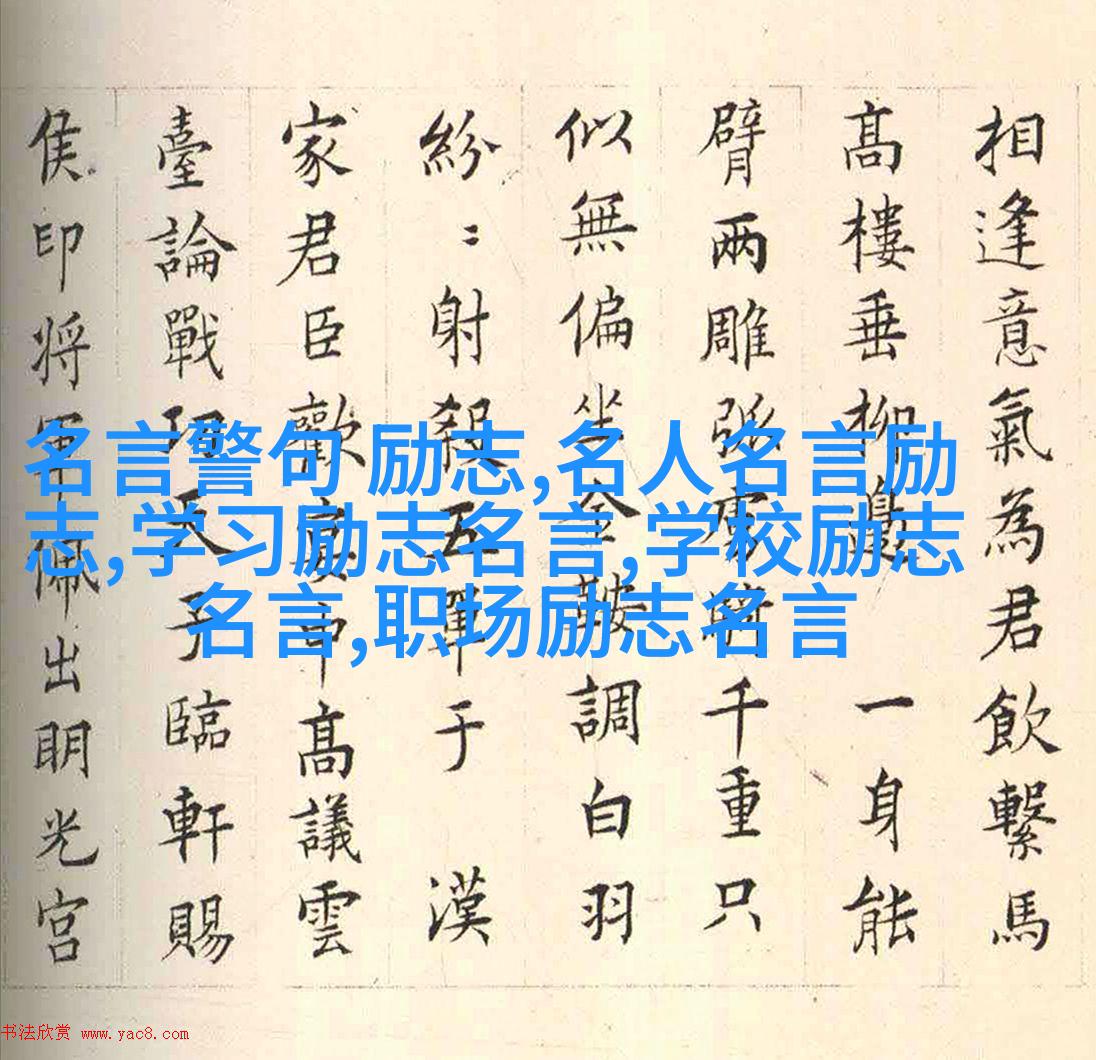 相逢意氣為君飲繫馬
髙樓垂柳邊 一身能
臂兩雕弧虜騎千重只
似無偏坐金鞍調白羽
紛〻射殺五單于 漢
家君臣歡宴髙議雲
臺論戰功天子臨軒賜
侯印将軍佩出明光宮
名言警句 励志,名人名言励
志,学习励志名言,学校励志
名言,职场励志名言
书法欣赏 www.yac8.com